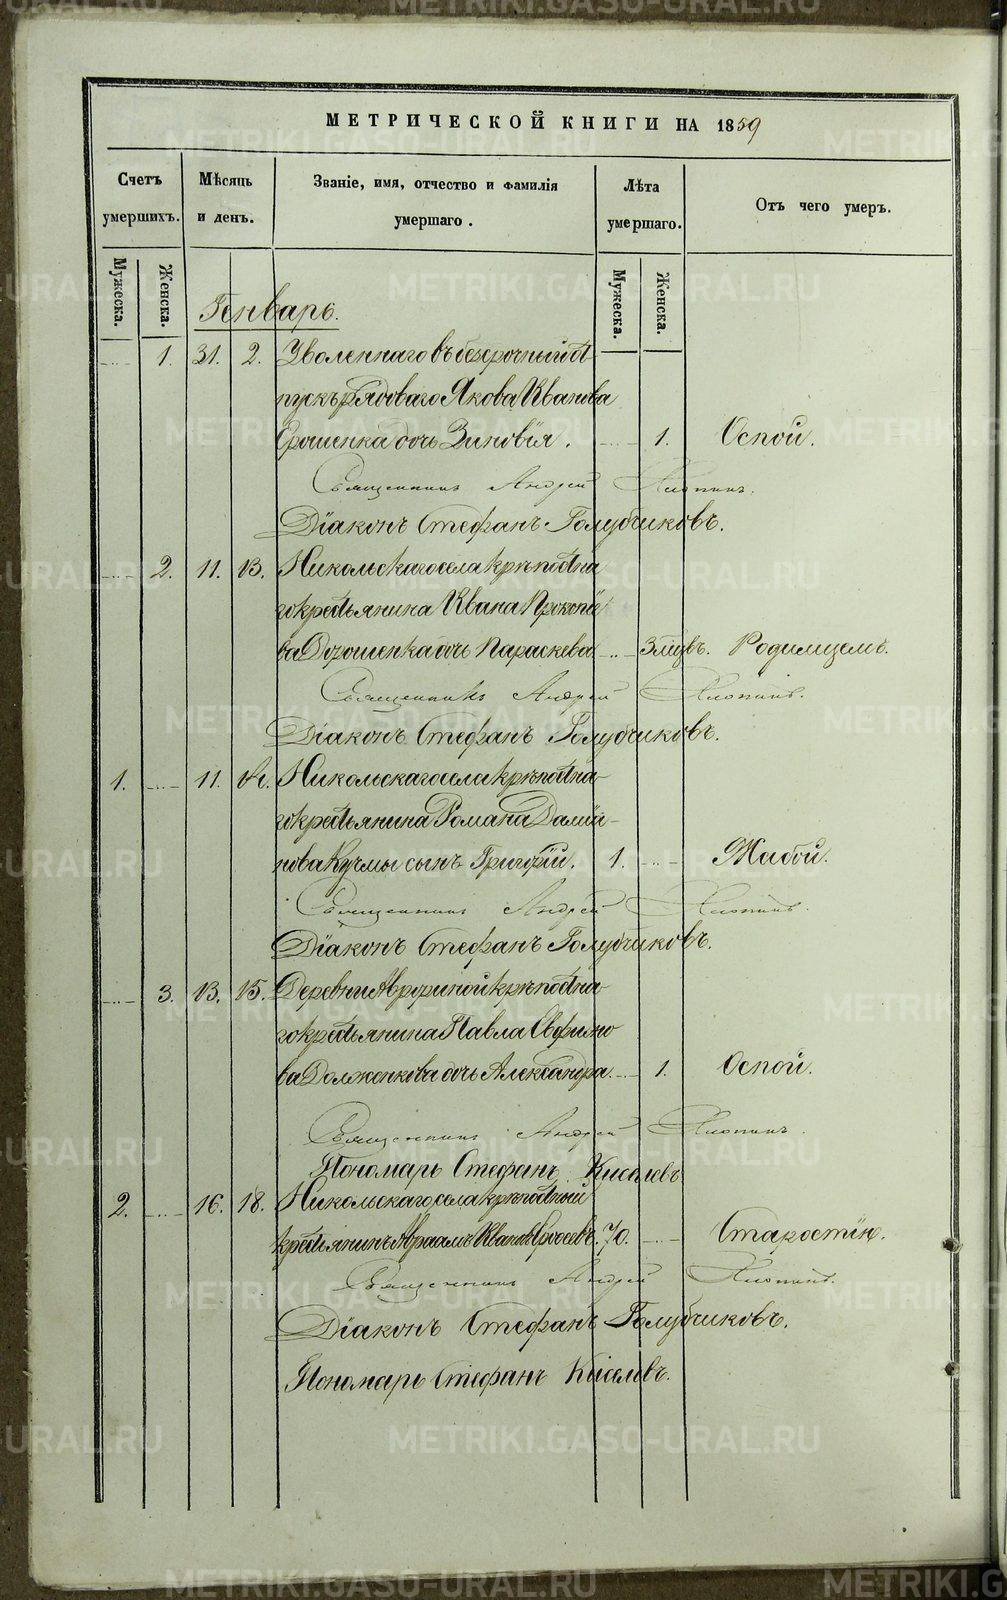 МЕТРИЧЕСКОЙ КНИГИ НА 1859
Счетъ умершихъ.
Мѣсяць и день.
Званіе, имя, отчество и фамилія умершаго.
Лѣта умершаго.
Отъ чего умеръ.
Мужеска.
Женска.
Мужеска.
Женска.
Генварь.
1. 31. 2. Уволеннаго въ безсрочный от
пускъ рядоваго Якова Иванова
Ерошенка дочь Зиновія. 1. Оспой.
Священникъ Андрей
Діаконъ Стефанъ Голубчиковъ.
2. 11. 13. Никольскаго села крѣпостна
го крестьянина Ивана Прокопiе
ва Дорошенка дочь Параскева 3 мцвъ. Родимцемъ.
Священникъ Андрей
Діаконъ Стефанъ Голубчиковъ.
1. 11. Никольскаго села крѣпостна-
го крестьянина Романа Даміа-
нова Кучмы сынъ Григорій. 1. Жабой.
Священникъ Андрей
Діаконъ Стефанъ Голубчиковъ.
3. 13. 15. Деревни крѣпостна-
го крестьянина Павла Евфимо
ва Долженкова дочь Александра. 1. Оспой.
Священникъ Андрей
Пономарь Стефанъ Киселевъ
2. 16. 18. Никольскаго села крѣпостный
крестьянинъ Авраамъ Ивановъ 70. Старостію.
Священникъ Андрей
Діаконъ Стефанъ Голубчиковъ.
Пономарь Стефанъ Киселевъ.
METRIKI.GASO-URAL.RU